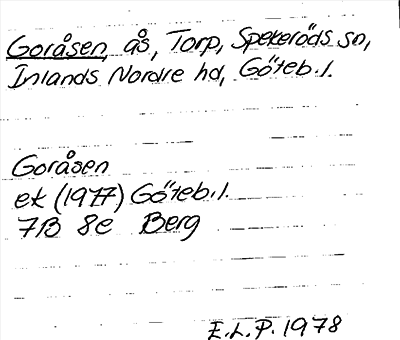 Goråsen, ås, Torp, Spekeröds sn,
Inlands Nordre hd, Göteb.l.
Goråsen
ek (1977) Göteb.l.
7B 8e Berg
E.L.P. 1978